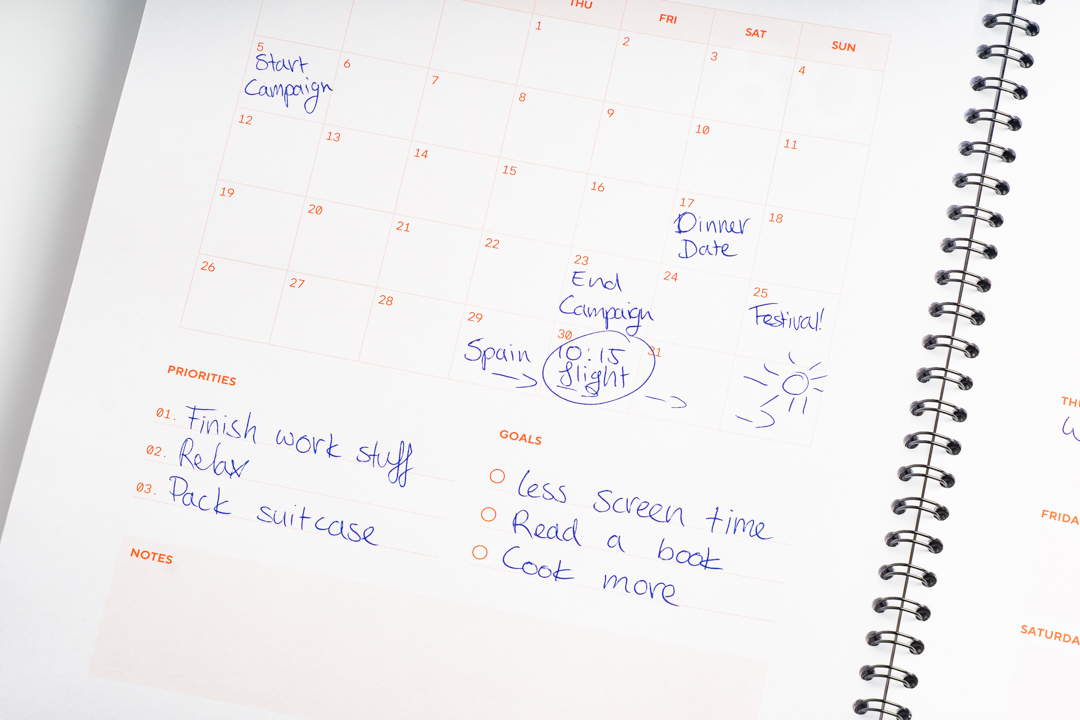 THU FRI SAT SUN
1 2 3 4
5 6 7 8 9 10 11
Start
Campaign
12 13 14 15 16 17 18
Dinner
Date
19 20 21 22 23 24 25
End
Campaign
Festival!
26 27 28 29 30 31
Spain
10:15
flight
PRIORITIES
01. Finish work stuff
02. Relax
03. Pack suitcase
GOALS
less screen time
Read a book
Cook more
NOTES
FRIDA
SATURDA